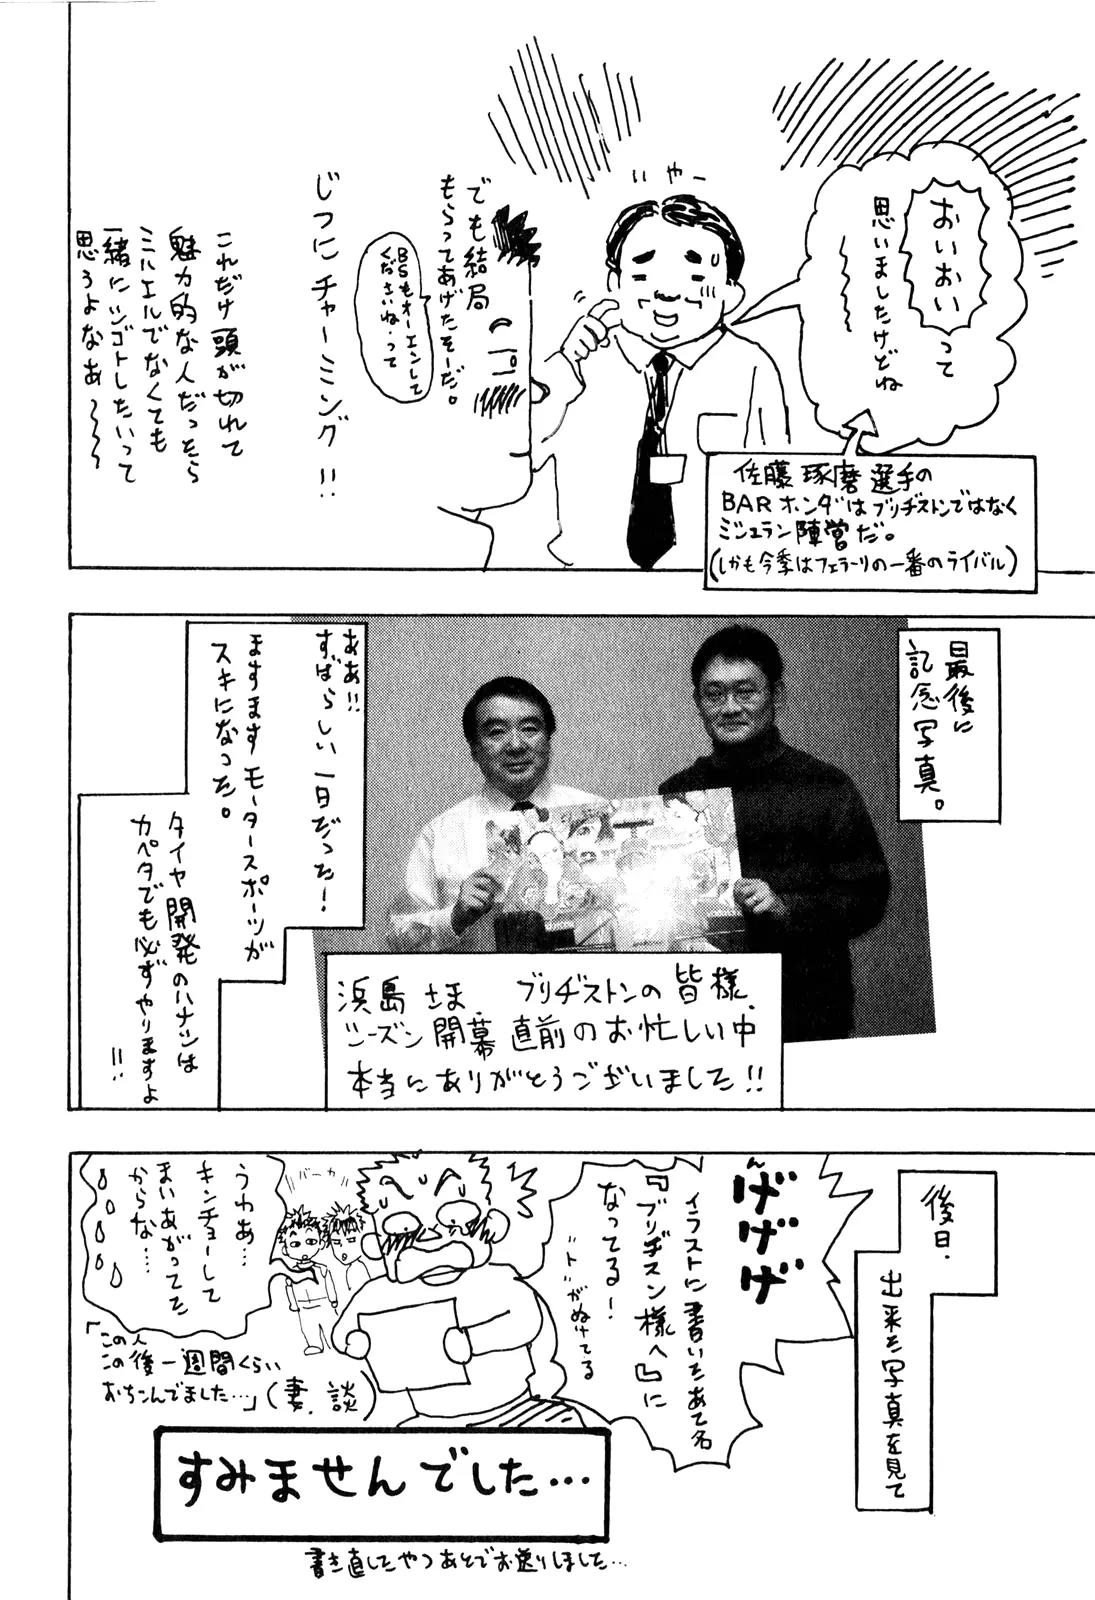 いやー
おいおいって
思いましたけどね
佐藤琢磨選手の
BARホンダはブリヂストンではなく
ミシュラン陣営だ。
(しかも今季はフェラーリの一番のライバル)
でも結局
もらってあげたそーだ。
BSもオーエンして
くださいね、って
じつにチャーミング!!
これだけ頭が切れて
魅力的な人だったら
ミハエルでなくても
一緒にシゴトしたいって
思うよなあ~~~
最後に
記念写真。
ああ!!
すばらしい一日だった!
ますますモータースポーツが
スキになった。
タイヤ開発のハナシは
カペタでも必ずやりますよ
!!
浜島さま ブリヂストンの皆様、
シーズン開幕直前のお忙しい中
本当にありがとうございました!!
後日、
出来た写真を見て
んげげげ
イラストに書いたあて名
『ブリヂスン様へ』に
なってる!
"ト"がぬけてる
バーカ
うわあ…
キンチョーして
まいあがってた
からな…
「この人
この後一週間くらい
おちこんでました…」(妻、談)
すみませんでした…
書き直したやつあとでお送りしました…